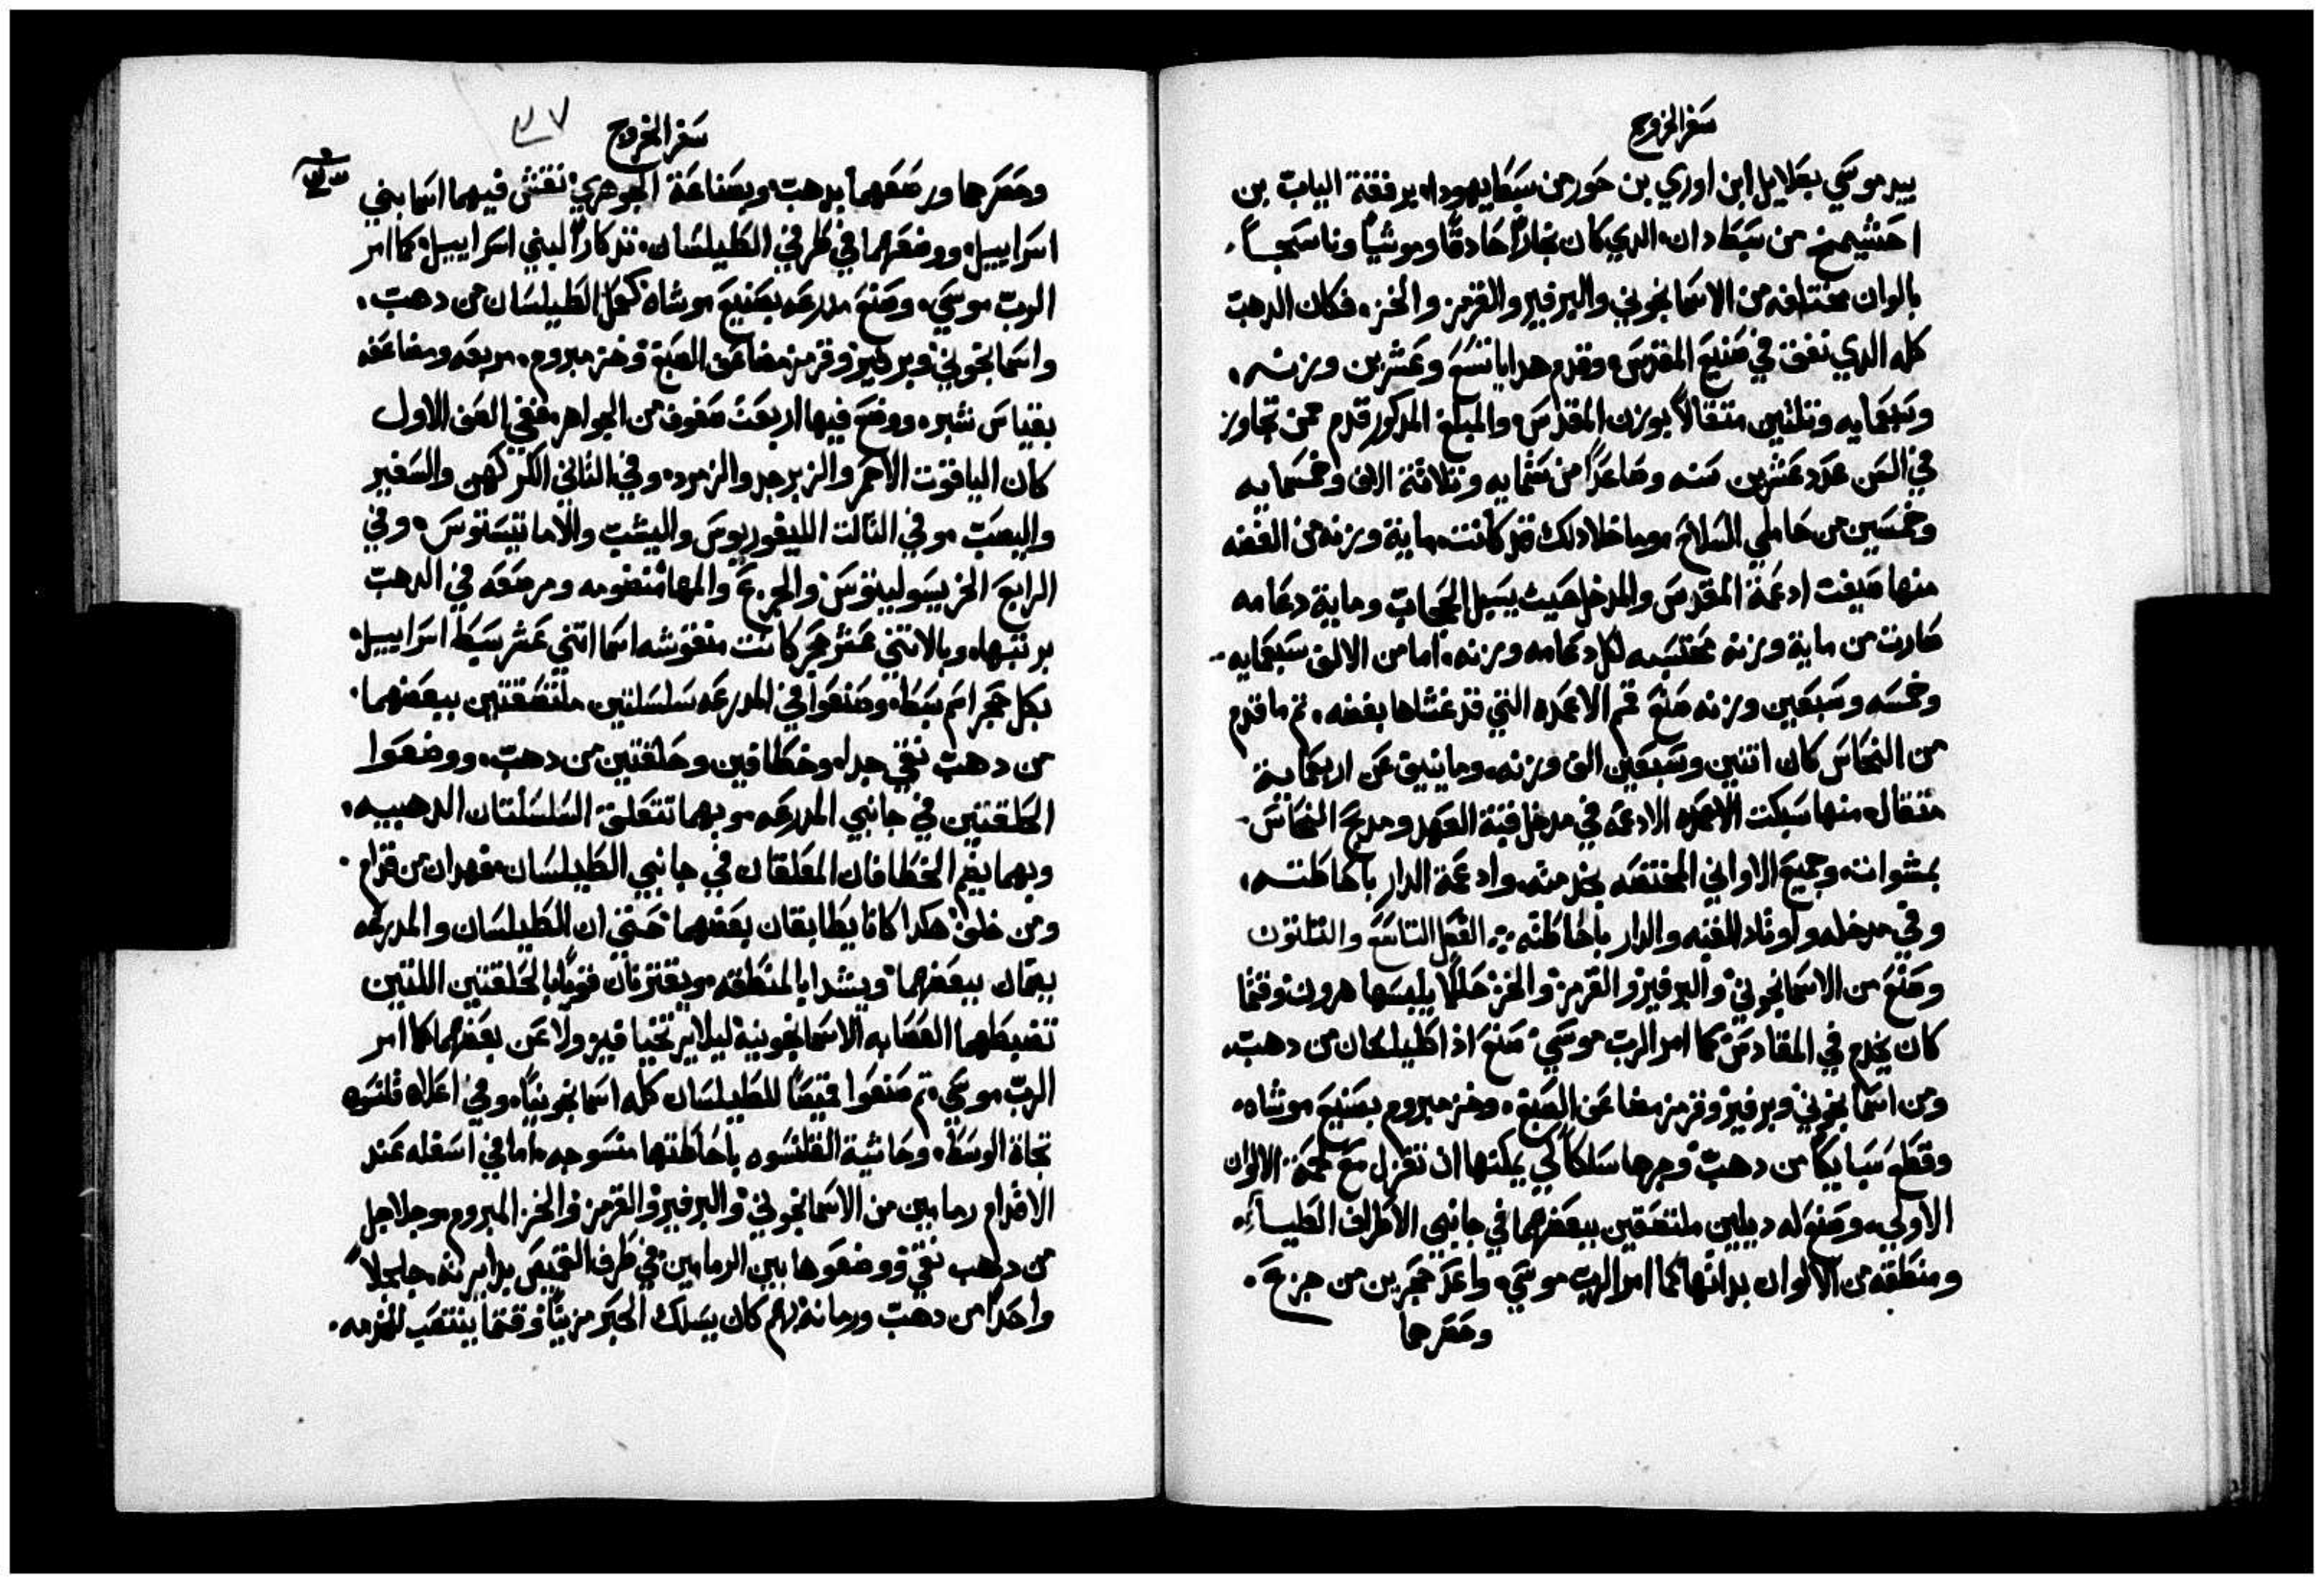 سفر الخروج
بيد موسي بصلاييل ابن اوري بن حور من سبط يهودا، برفقة الياب بن
احشيمخ من سبط دان، الدي كان نجاراً حادقاً وموشياً وناسجاً،
بالوان مختلفه من الاسمانجوني والبرفير والقرمز والخز، فكان الدهب
كله الدي نفق في صنيع المقدس، وقدم هدايا تسع وعشرين وزنه،
وسبعمايه وتلتين متقالاً بوزن المقدس، والمبلغ المدكور قدم ممن تجاوز
في السن عدد عشرين سنه وصاعداً من ستمايه وتلاتة الاف وخمسمايه
وخمسين من حاملي السلاح، وما خلا دلك قد كانت ماية وزنه من الفضه
منها صيغت ادعمة المقدس والمدخل حيث يسبل الحجاب وماية دعامه
صارت من ماية وزنه محتسبه لكل دعامه وزنه، اما من الالف سبعمايه
وخمسه وسبعين وزنه صنع قمم الاعمده التي قد غشاها بفضه، تم ما قدم
من النحاس كان اتنين وسبعين الف وزنه، وما ينيف عن اربعماية
متقال، منها سبكت الادعمه في مدخل قبة العهد ومدبح النحاس
بمشواته، وجميع الاواني المختصه بخدمته، وادعمة الدار باحاطته،
وفي مدخله واوتاد القبه والدار باحاطته ؞ الفصل التاسع والتلتون
وصنع من الاسمانجوني والبرفير والقرمز والخز حللاً يلبسها هرون وقتما
كان يخدم في المقادس كما امر الرب موسي، صنع اذا طيلسان من دهب،
ومن اسمانجوني وبرفير وقرمز مضاعف الصبغ، وخز مبروم بصنيع موشاه،
وقطع سبايكاً من دهب وجرها سلكاً لكي يمكنها ان تغزل مع لحمة الالوان
الاولي، وصنع له ديلين ملتصقين ببعضهما في جانبي الاطراف العليا،
ومنطقه من الالوان بداتها كما امر الرب موسي، واعد حجرين من جزع،
وحصرهما
سفر الخروج
وحصرهما ورصعهما بدهب وبصناعة الجوهري نقش فيهما اسما بني
اسراييل، ووضعهما في طرفي الطيلسان، تدكاراً لبني اسراييل، كما امر
الرب موسي، وصنع مدرعه بصنيع موشاه كعمل الطيلسان من دهب،
واسمانجوني وبرفير وقرمز مضاعف الصبغ وخز مبروم، مربعه ومضاعفه
بقياس شبر، ووضع فيها اربعت صفوف من الجواهر، ففي الصف الاول
كان الياقوت الاحمر والزبرجد والزمرد، وفي التاني الكركهن والسفير
واليصب، وفي التالت الليغوريوس واليشب والاماتيستوس، وفي
الرابع الخريسوليتوس والجزع والمها منضومه ومرصعه في الدهب
برتبها، وبالاتني عشر حجر كانت منقوشه اسما اتني عشر سبط اسراييل،
بكل حجر اسم سبط، وصنعوا في المدرعه سلسلتين ملتصقتين ببعضهما،
من دهب نقي جدا، وخطافين وحلقتين من دهب، ووضعوا
الحلقتين في جانبي المدرعه، وبهما تتعلق السلسلتان الدهبيه،
وبهما يضم الخطافان المعلقان في جانبي الطيلسان، فهدان من قدام
ومن خلف هكدا كانا يطابقان بعضهما حتي ان الطيلسان والمدرعه
يضمان ببعضهما، ويشدا بالمنطقه، ويقترنان قوياً بالحلقتين اللتين
تضبطهما العصابه الاسمانجونيه ليلا يرتخيا فيزولا عن بعضهما كما امر
الرب موسي، تم صنعوا قميصاً للطيلسان كله اسمانجونياً، وفي اعلاه قلنسوه
تجاة الوسط، وحاشية القلنسوه باحاطتها منسوجه، اما في اسفله عند
الاقدام رمامين من الاسمانجوني والبرفير والقرمز والخز المبروم، وجلاجل
من دهب نقي ووضعوها بين الرمامين في طرف القميص بدايرته، جلجلاً
واحداً من دهب ورمانه، بهم كان يسلك الحبر مزيناً وقتما ينتصب للخدمه،